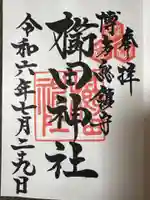 奉拝
博多総鎮守
櫛田神社
令和六年七月二十九日